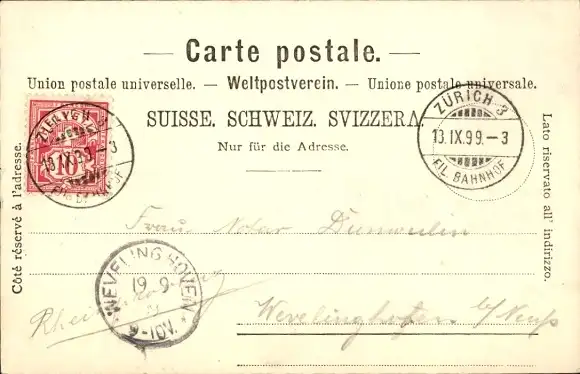 — Carte postale. —
Union postale universelle. — Weltpostverein. — Unione postale universale.
SUISSE. SCHWEIZ. SVIZZERA.
Nur für die Adresse.
Côté réservé à l'adresse.
Lato riservato all' indirizzo.
10
13.IX.99.–3
ZÜRICH 3
13.IX.99.–3
FIL. BAHNHOF
Frau Notar Dumoulin
WEVELINGHOVEN
19 9
9-10V.
Wevelinghofen b/ Neuß